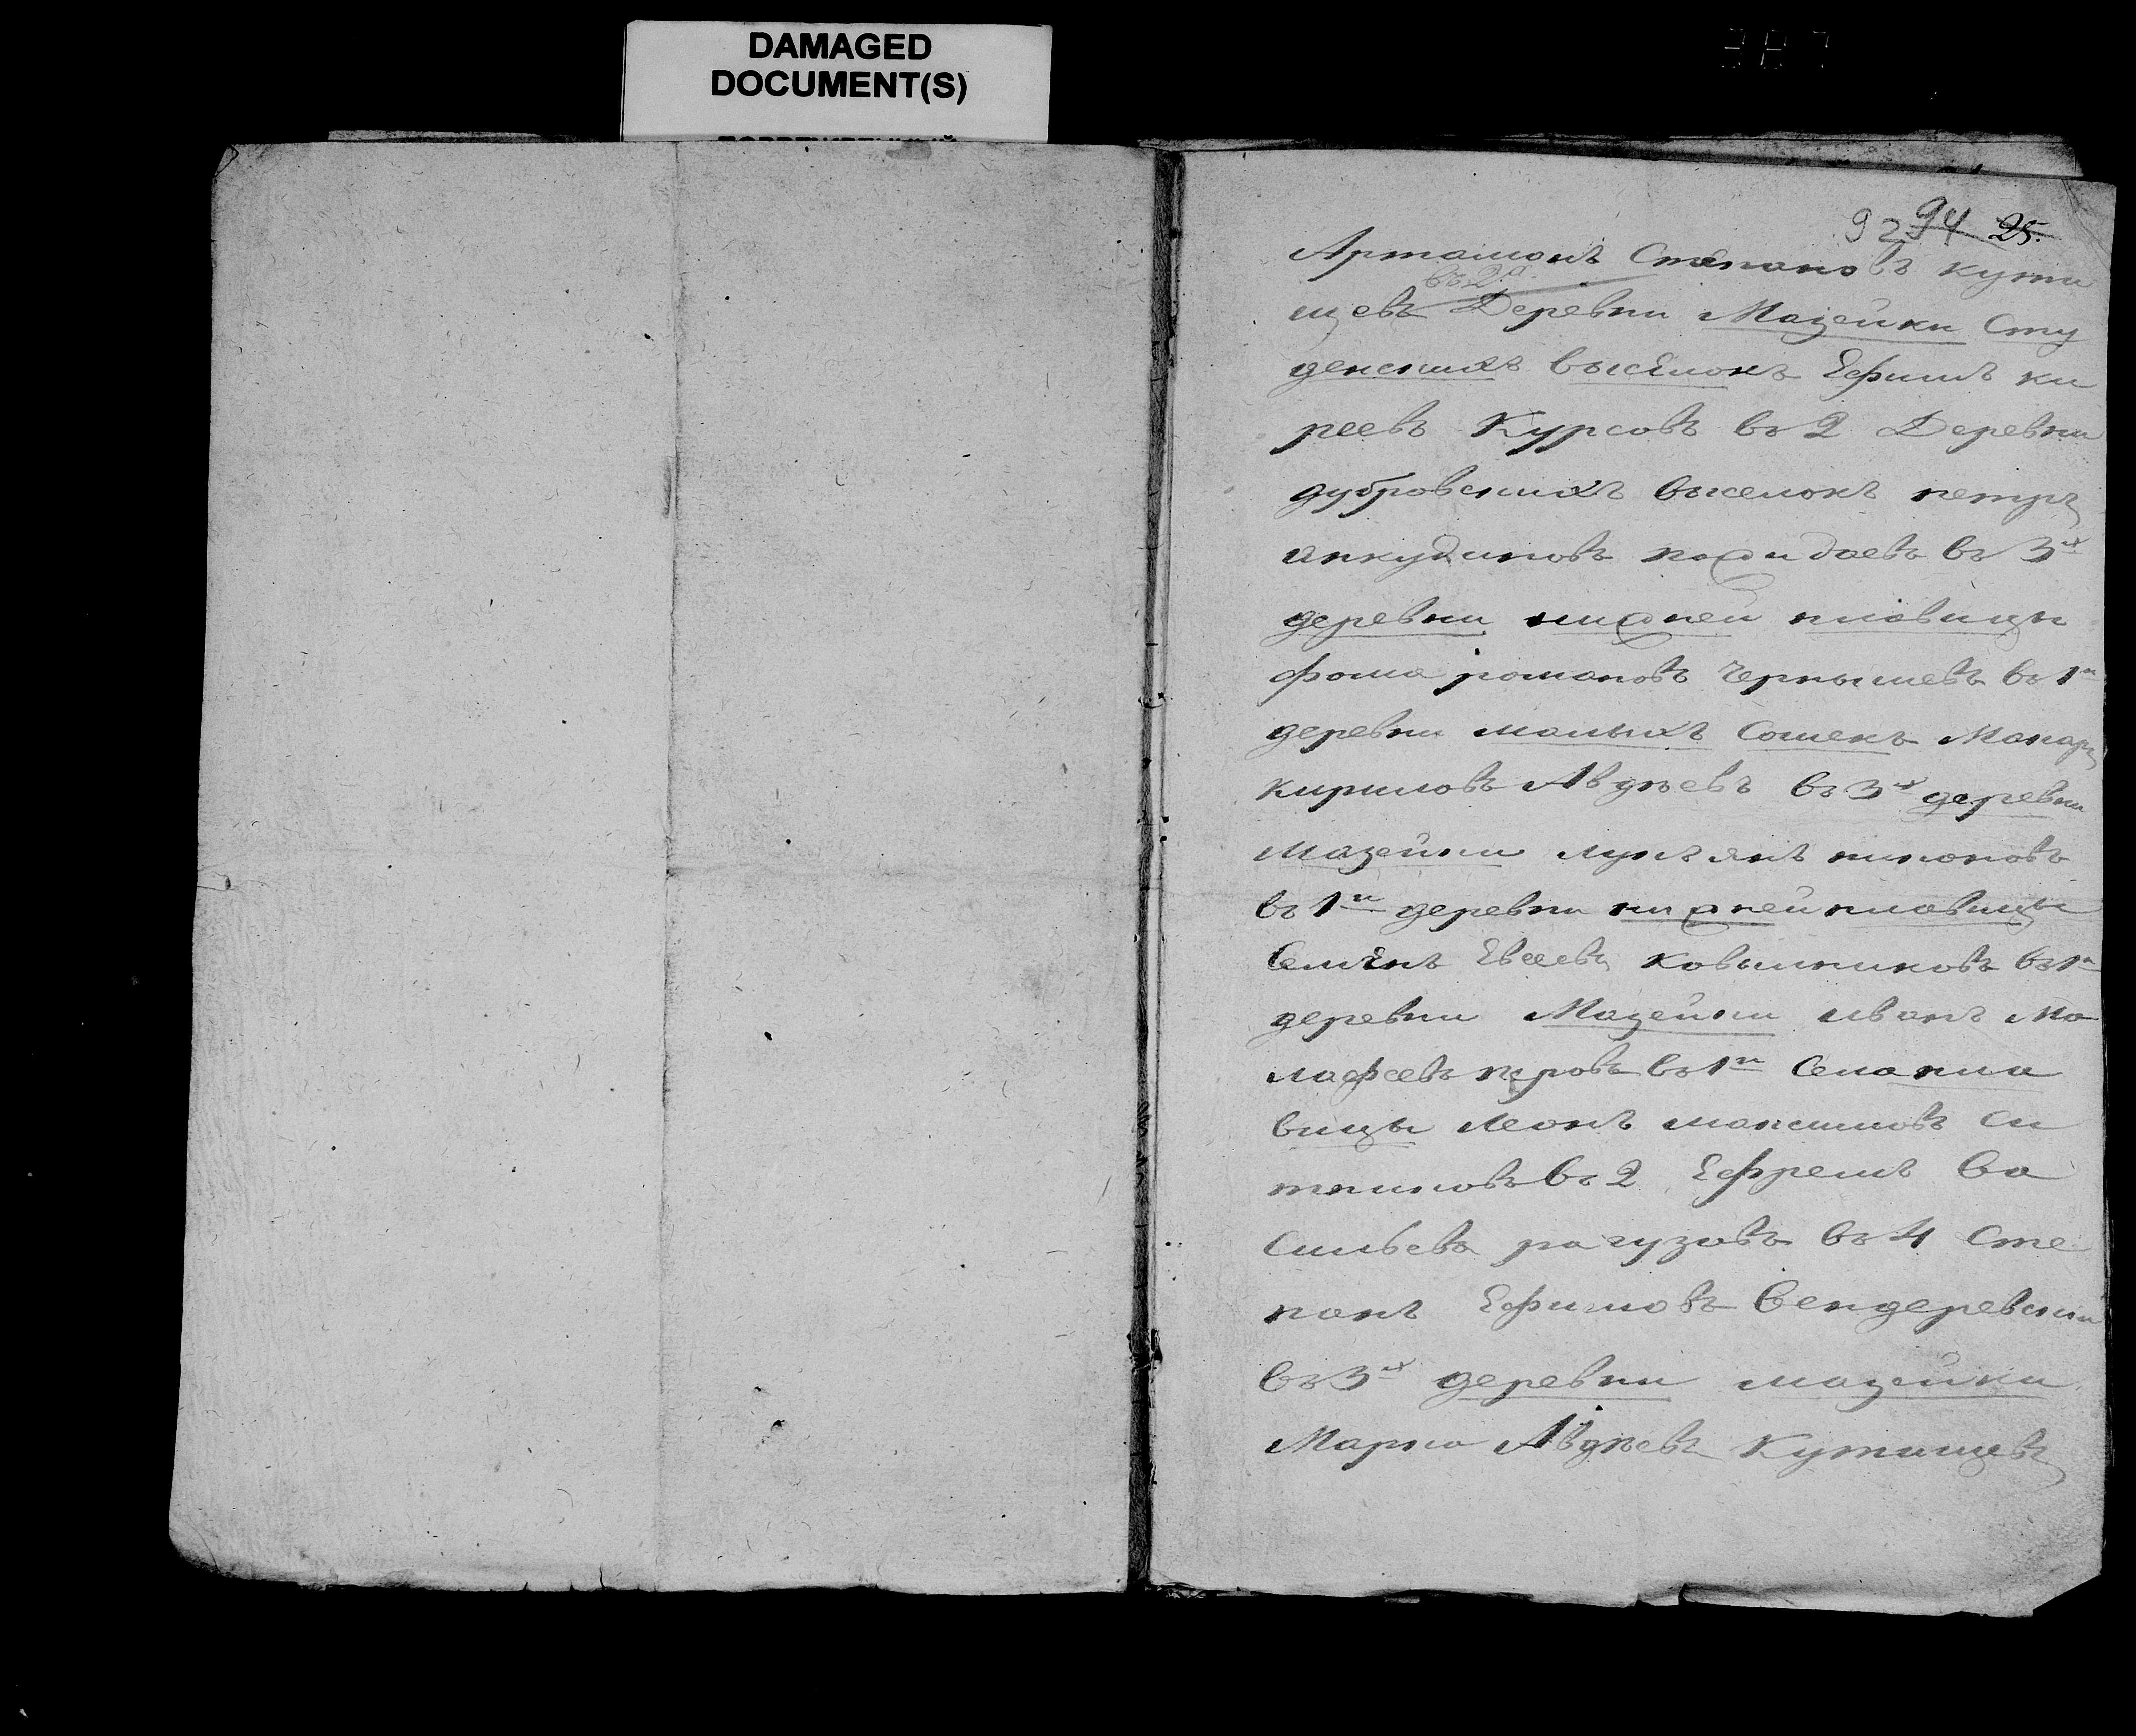 DAMAGED
DOCUMENT(S)
92 94 25.
Артамонъ Степановъ кути
въ 2а
щевъ Деревни Мазейки Сту
денскихъ высѣлокъ Ефимъ ки
реевъ Курсовъ въ 2 Деревни
дубровскихъ выселокъ петръ
анкудиновъ въ 3х
деревни нижней плавицы
фома романовъ Чернышевъ въ 1м
деревни малыхъ Сошекъ Макаръ
кириловъ Авдѣевъ въ 3х деревни
мазейки лукъянъ никоновъ
въ 1м деревни нижней плавицы
Семѣнъ Евсеевъ Ковыльниковъ въ 1м
деревни Мазейки иванъ Ма
лафеевъ въ 1м Села пла
вицы Леонъ максимовъ Си
тниковъ въ 2 Ефремъ Ва
Сильевъ рагузовъ въ 4 Сте
панъ Ефимовъ
въ 3х деревни мазейки
Марко Авдѣевъ Кутищевъ